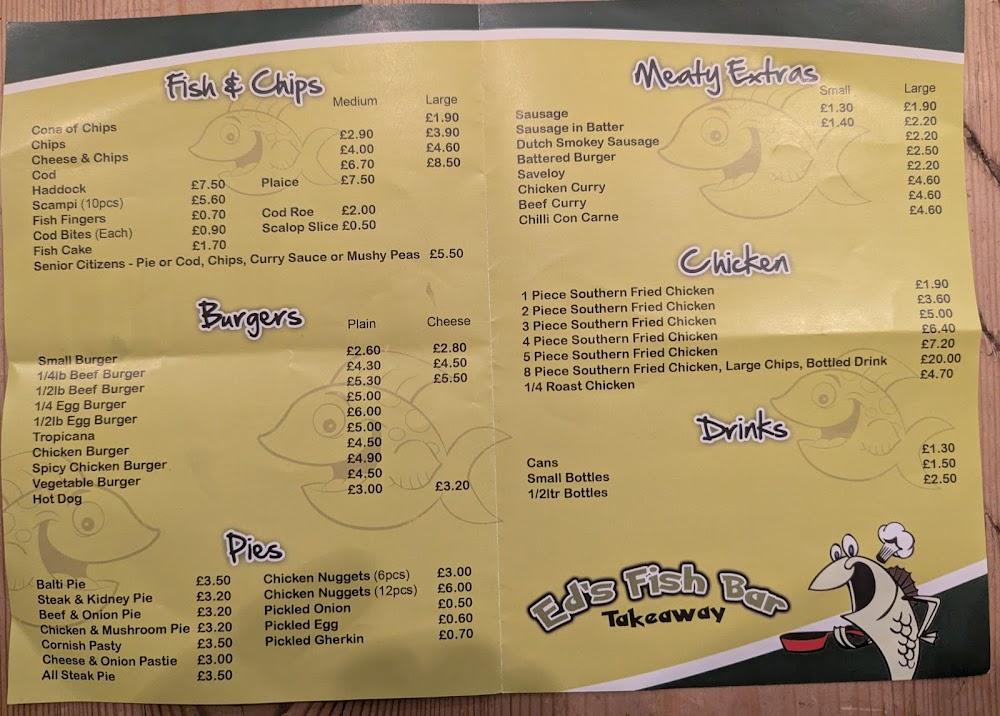 Fish & Chips
Medium Large
Cone of Chips £1.90
Chips £2.90 £3.90
Cheese & Chips £4.00 £4.60
Cod £6.70 £8.50
Haddock £7.50 Plaice £7.50
Scampi (10pcs) £5.60
Fish Fingers £0.70 Cod Roe £2.00
Cod Bites (Each) £0.90 Scalop Slice £0.50
Fish Cake £1.70
Senior Citizens - Pie or Cod, Chips, Curry Sauce or Mushy Peas £5.50
Burgers
Plain Cheese
Small Burger £2.60 £2.80
1/4lb Beef Burger £4.30 £4.50
1/2lb Beef Burger £5.30 £5.50
1/4 Egg Burger £5.00
1/2lb Egg Burger £6.00
Tropicana £5.00
Chicken Burger £4.50
Spicy Chicken Burger £4.90
Vegetable Burger £4.50
Hot Dog £3.00 £3.20
Pies
Balti Pie £3.50 Chicken Nuggets (6pcs) £3.00
Steak & Kidney Pie £3.20 Chicken Nuggets (12pcs) £6.00
Beef & Onion Pie £3.20 Pickled Onion £0.50
Chicken & Mushroom Pie £3.20 Pickled Egg £0.60
Cornish Pasty £3.50 Pickled Gherkin £0.70
Cheese & Onion Pastie £3.00
All Steak Pie £3.50
Meaty Extras
Small Large
Sausage £1.30 £1.90
Sausage in Batter £1.40 £2.20
Dutch Smokey Sausage £2.20
Battered Burger £2.50
Saveloy £2.20
Chicken Curry £4.60
Beef Curry £4.60
Chilli Con Carne £4.60
Chicken
1 Piece Southern Fried Chicken £1.90
2 Piece Southern Fried Chicken £3.60
3 Piece Southern Fried Chicken £5.00
4 Piece Southern Fried Chicken £6.40
5 Piece Southern Fried Chicken £7.20
8 Piece Southern Fried Chicken, Large Chips, Bottled Drink £20.00
1/4 Roast Chicken £4.70
Drinks
Cans £1.30
Small Bottles £1.50
1/2ltr Bottles £2.50
Ed's Fish Bar
Takeaway